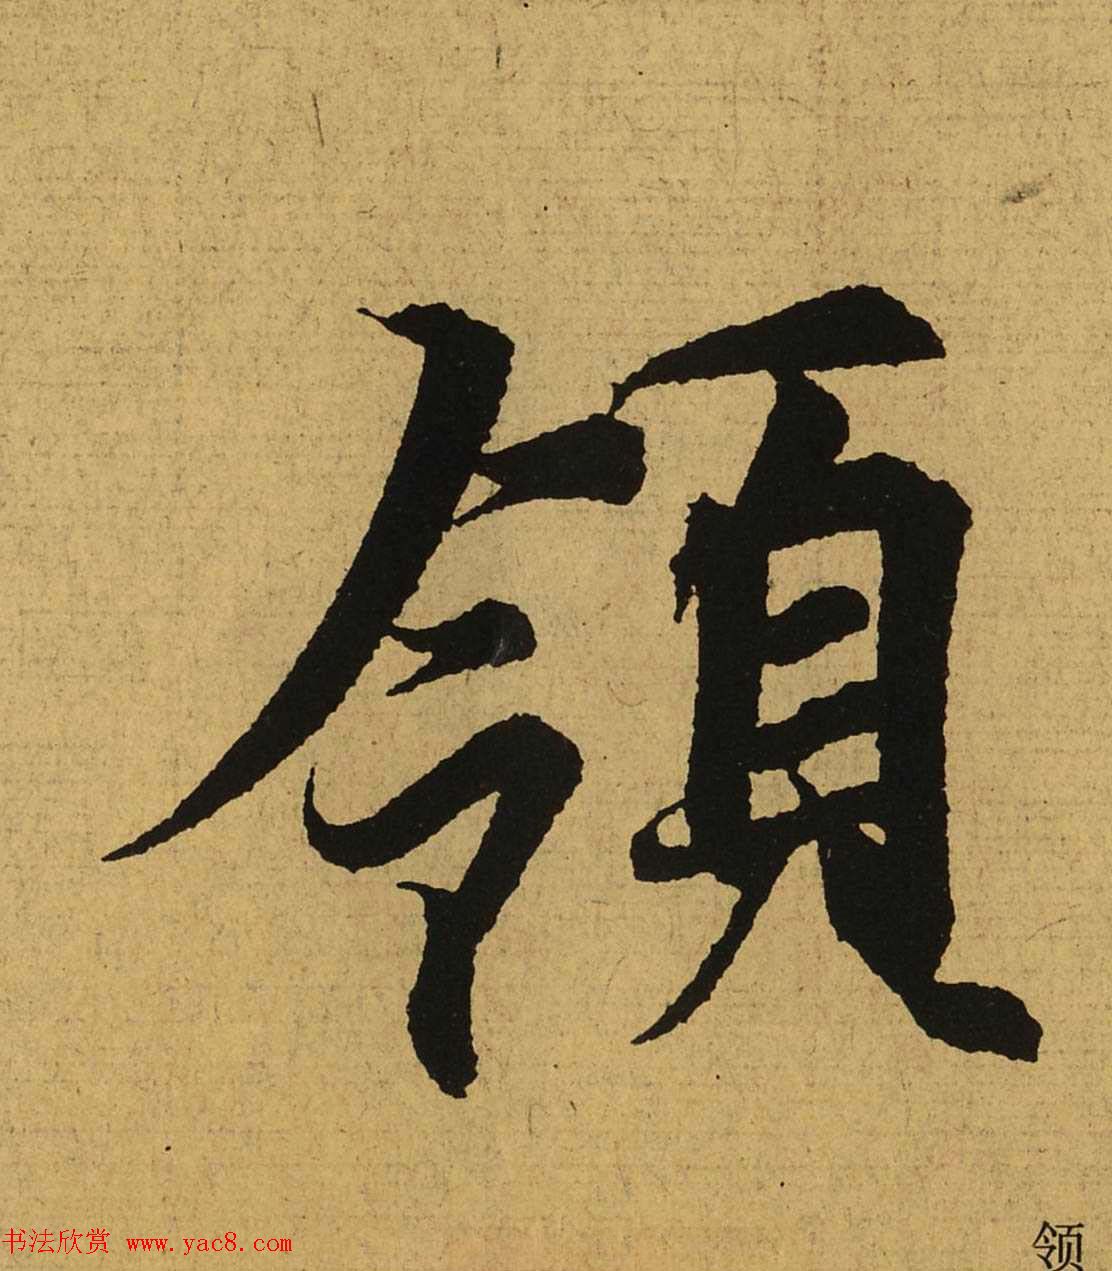 領
书法欣赏 www.yac8.com
领